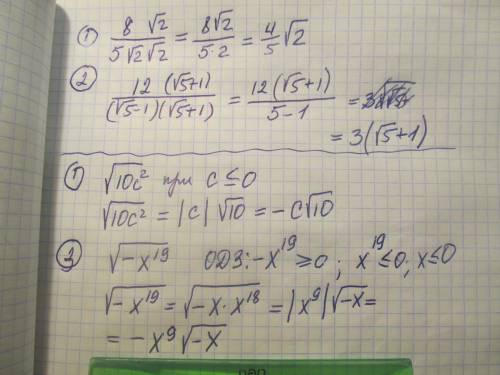 ① 8 √2 / 5√2 √2 = 8√2 / 5·2 = 4/5 √2
② 12 (√5+1) / (√5-1)(√5+1) = 12(√5+1) / 5-1 =
= 3(√5+1)
① √10c² при c ≤ 0
√10c² = |c| √10 = -c√10
③ √-x¹⁹ ОДЗ: -x¹⁹ ≥ 0 ; x¹⁹ ≤ 0, x ≤ 0
√-x¹⁹ = √-x·x¹⁸ = |x⁹| √-x =
= -x⁹ √-x